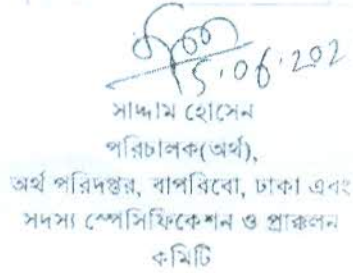 15.06.202
সাদ্দাম হোসেন
পরিচালক(অর্থ),
অর্থ পরিদপ্তর, বাপবিবো, ঢাকা এবং
সদস্য স্পেসিফিকেশন ও প্রাক্কলন
কমিটি